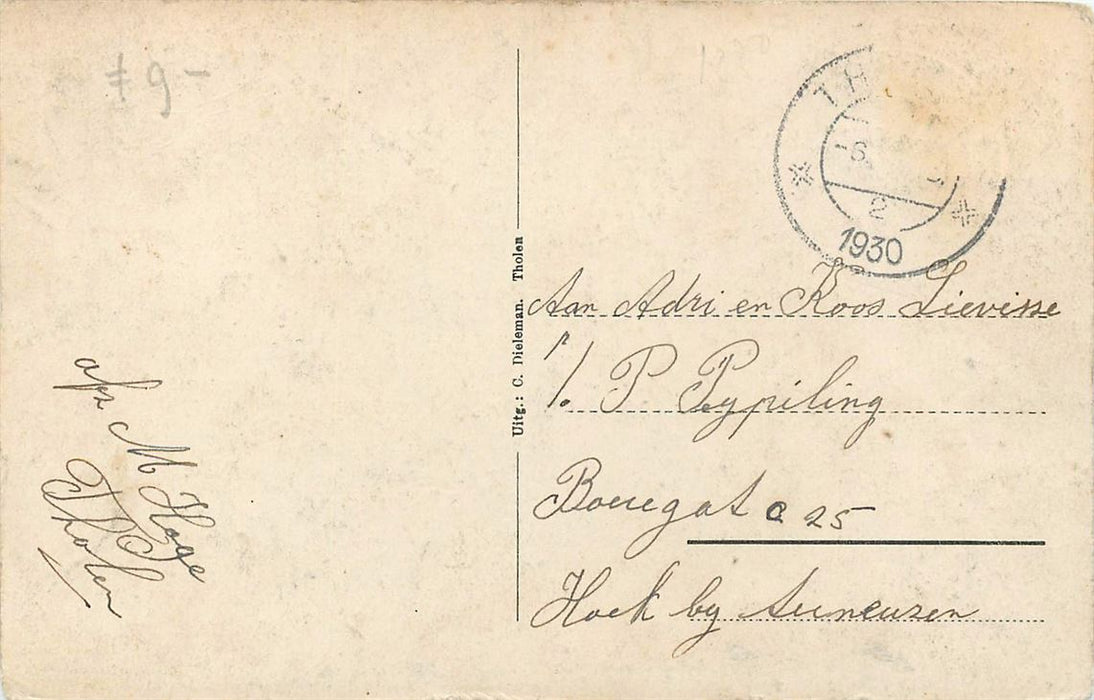 9-
TH
-6.
2
1930
Uitg.: C. Dieleman. Tholen
Aan Adri en Koos Lievisse
P. Pypiling
Boeregat C 25
Hoek by
afz M Hage
Tholen